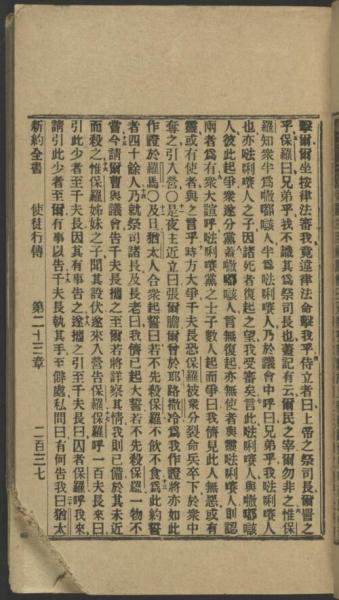 擊爾爾坐按律法審我竟違律法命擊我乎侍立者曰上帝之祭司長爾詈之
乎保羅曰兄弟乎我不識其爲祭司長也蓋記有云爾民之宰爾勿非之惟保
羅知衆半爲㗭嘟㗇人半爲𠵽唎㘔人乃於議會中呼曰兄弟乎我𠵽唎㘔人
也亦𠵽唎㘔人之子因諸死者復起之望我受審矣言此𠵽唎㘔人與㗭嘟㗇
人彼此起爭衆遂分黨蓋㗭嘟㗇人言無復起亦無使者與靈𠵽唎㘔人則認
兩者焉有衆大諠呼𠵽唎㘔黨之士子數人起而爭曰我儕見此人無惡或有
靈或有使者與之言乎時方大爭千夫長恐保羅被衆分裂命兵卒下於衆中
奪之引入營〇是夜主近立曰張膽爾曾於耶路撒冷爲我作證將亦如此
作證於羅馬〇及日猶太人合衆起誓曰若不先殺保羅不飲不食爲此約誓
者四十餘人乃就祭司諸長及長老曰我儕已起大誓若不先殺保羅一物不
嘗今請爾曹與議會告千夫長攜之至爾若將詳察其情我則已備於其未近
而殺之惟保羅姊妹之子聞其設伏遂來入營告保羅保羅呼一百夫長來曰
引此少者至千夫長因其有事告之遂攜之引至千夫長曰囚者保羅呼我來
請引此少者至爾有事以告千夫長執其手至僻處私問曰有何告我曰猶太
新約全書 使徒行傳 第二十三章 二百三七